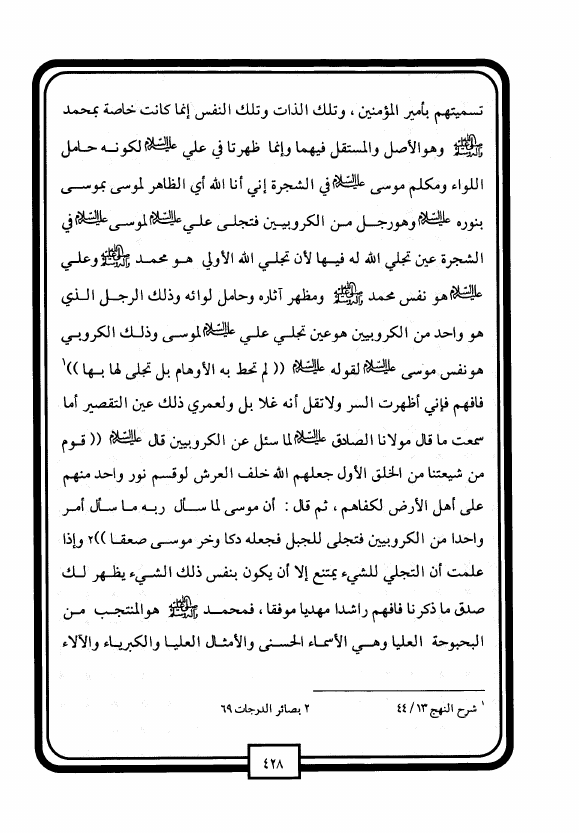 تسميتهم بأمير المؤمنين ، وتلك الذات وتلك النفس إنما كانت خاصة بمحمد
صلى الله عليه وآله وهو الأصل والمستقل فيهما وإنما ظهرتا في علي عليه السلام لكونه حامل
اللواء ومكلم موسى عليه السلام في الشجرة إني أنا الله أي الظاهر لموسى بموسى
بنوره عليه السلام وهو رجل من الكروبيين فتجلى علي عليه السلام لموسى عليه السلام في
الشجرة عين تجلي الله له فيها لأن تجلي الله الأولي هو محمد صلى الله عليه وآله وعلي
عليه السلام هو نفس محمد صلى الله عليه وآله ومظهر آثاره وحامل لوائه وذلك الرجل الذي
هو واحد من الكروبيين هو عين تجلي علي عليه السلام لموسى وذلك الكروبي
هو نفس موسى عليه السلام لقوله عليه السلام (( لم تحط به الأوهام بل تجلى لها بها ))١
فافهم فإني أظهرت السر ولا تقل أنه غلا بل ولعمري ذلك عين التقصير أما
سمعت ما قال مولانا الصادق عليه السلام لما سئل عن الكروبيين قال عليه السلام (( قوم
من شيعتنا من الخلق الأول جعلهم الله خلف العرش لو قسم نور واحد منهم
على أهل الأرض لكفاهم ، ثم قال : أن موسى لما سأل ربه ما سأل أمر
واحدا من الكروبيين فتجلى للجبل فجعله دكا وخر موسى صعقا ))٢ وإذا
علمت أن التجلي للشيء يمتنع إلا أن يكون بنفس ذلك الشيء يظهر لك
صدق ما ذكرنا فافهم راشدا مهديا موفقا ، فمحمد صلى الله عليه وآله هو المنتجب من
البحبوحة العليا وهي الأسماء الحسنى والأمثال العليا والكبرياء والآلاء
١ شرح النهج ١٣/ ٤٤ ٢ بصائر الدرجات ٦٩
٤٢٨